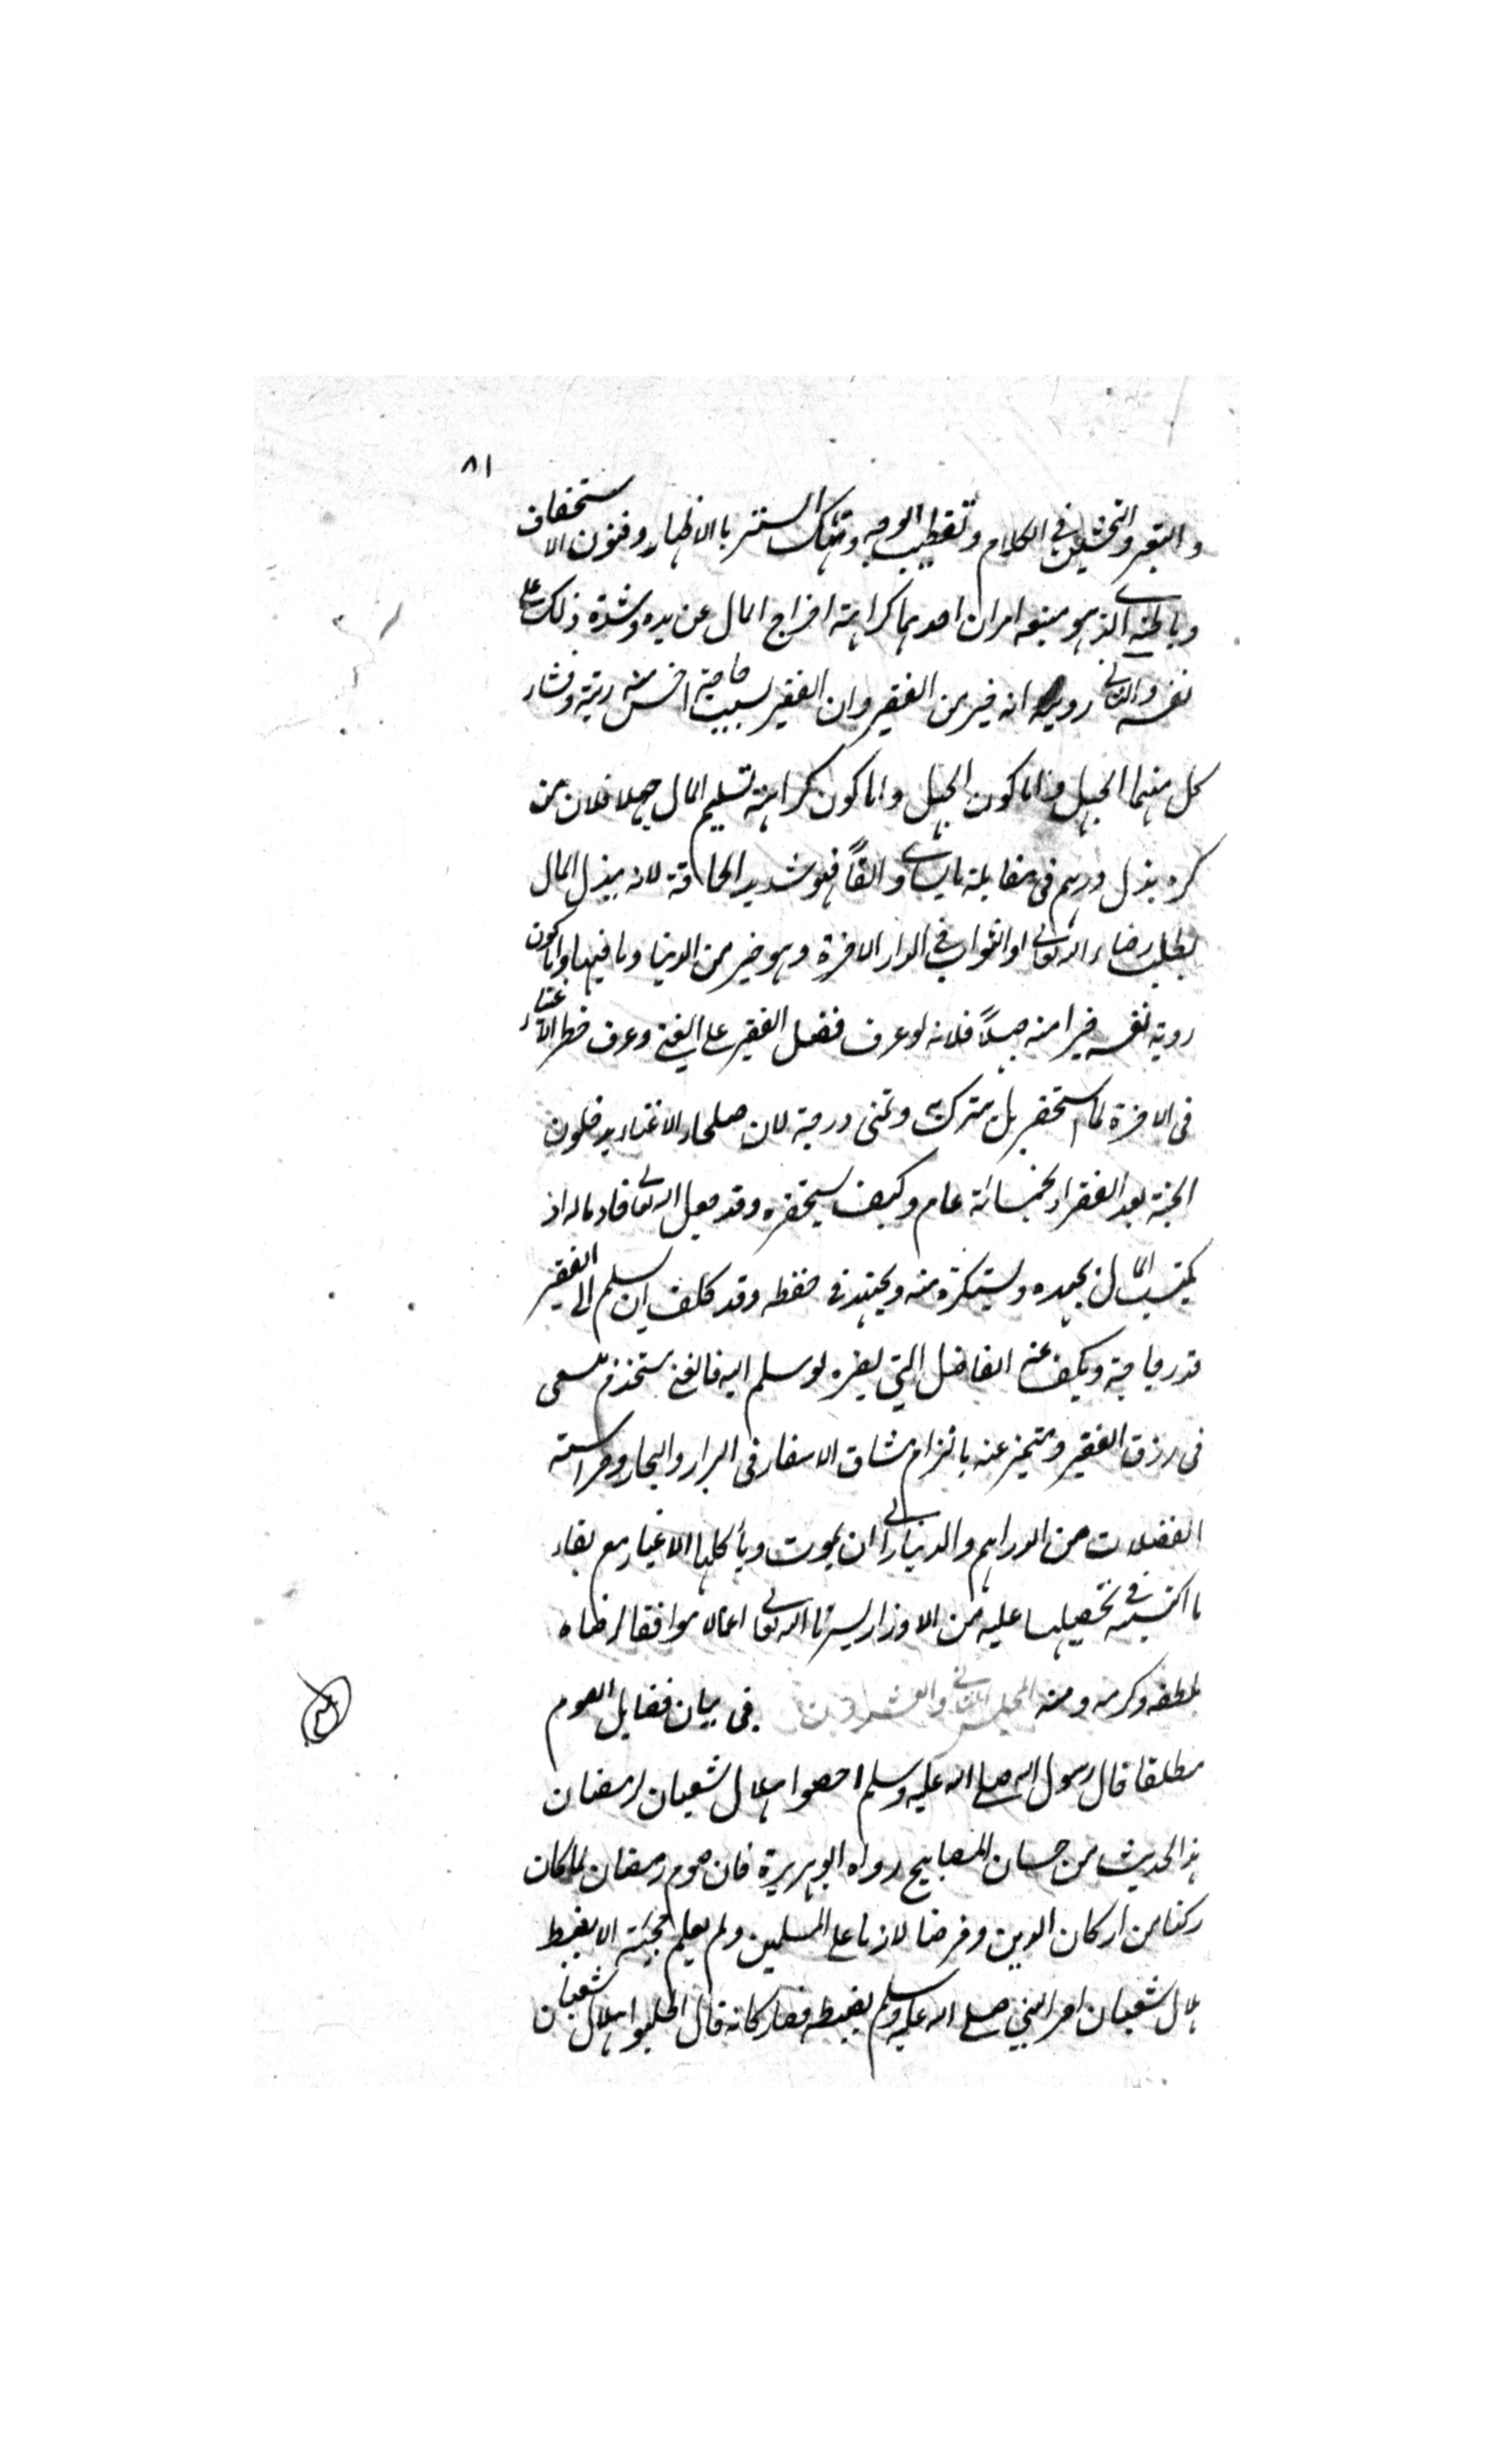 ٨١
والتعير والتخشين في الكلام وتقطيب الوجه وهتك الستر بالاظهار وفنون الاستخفاف
وباطنه الذي هو منبعه امران احدهما كراهته اخراج المال عن يده وشدة ذلك على
نفسه والثاني رويته انه خير من الفقير وان الفقير بسبب حاجته اخس منه رتبة ومنشاء
كل منهما الجهل اما كون كراهته تسليم المال جهلا فلان من
كره بذل درهم في مقابلة ما يساوي الفاً فهو شديد الحماقة لانه يبذل المال
لطلب رضاء الله تعالى او الثواب في الدار الاخرة وهو خير من الدنيا وما فيها واما كون
روية نفسه خيرا منه جهلاً فلانه لو عرف فضل الفقير على الغني وعرف خطر الاغنياء
في الاخرة لما استحقر بل يتبرك به وتمنى درجته لان صلحاء الاغنياء يدخلون
الجنة بعد الفقراء بخمسمائة عام وكيف يستحقره وقد جعل الله تعالى خادما له اذ
يكتسب المال بجهده ويستكثر منه ويجتهد في حفظه وقد كلف ان يسلم الى الفقير
قدر حاجته ويكف عنه الفاضل التي يضره لو سلم اليه فالغني مستخدم يسعى
في رزق الفقير ويتميز عنه بالتزام مشاق الاسفار في البرار والبحار وحراسته
الفضلات من الدراهم والدنانير الى ان يموت ويأكلها الاغيار مع بقاء
ما اكتسبه في تحصيلها عليه من الاوزار يسرنا الله تعالى اعمالا موافقا لرضاه
بلطفه وكرمه ومنه المجلس الثاني والعشرون في بيان فضايل الصوم
مطلقا قال رسول الله صلى الله عليه وسلم احصوا هلال شعبان لرمضان
هذا الحديث من حسان المصابيح رواه ابو هريرة فان صوم رمضان لما كان
ركنا من اركان الدين وفرضا لازما على المسلمين ولم يعلم مجيئه الا بضبط
هلال شعبان امر النبي صلى الله عليه وسلم بضبطه فصار كانه قال اطلبوا هلال شعبان